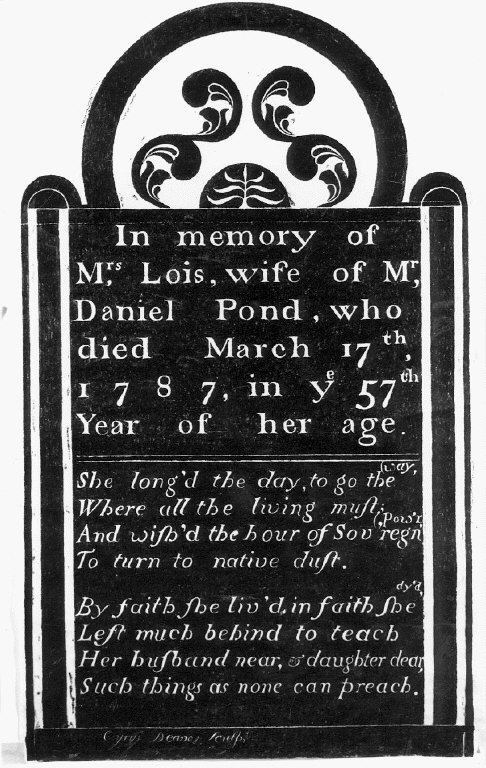 In memory of
Mrs. Lois, wife of Mr.
Daniel Pond, who
died March 17th,
1787, in ye 57th
Year of her age.
She long'd the day, to go the way,
Where all the living muſt;
And wiſh'd the hour of Sov'reign Pow'r,
To turn to native duſt.
By faith ſhe liv'd, in faith ſhe dy'd,
Left much behind to teach
Her huſband near, & daughter dear,
Such things as none can preach.
Cyrus Deane, sculp.